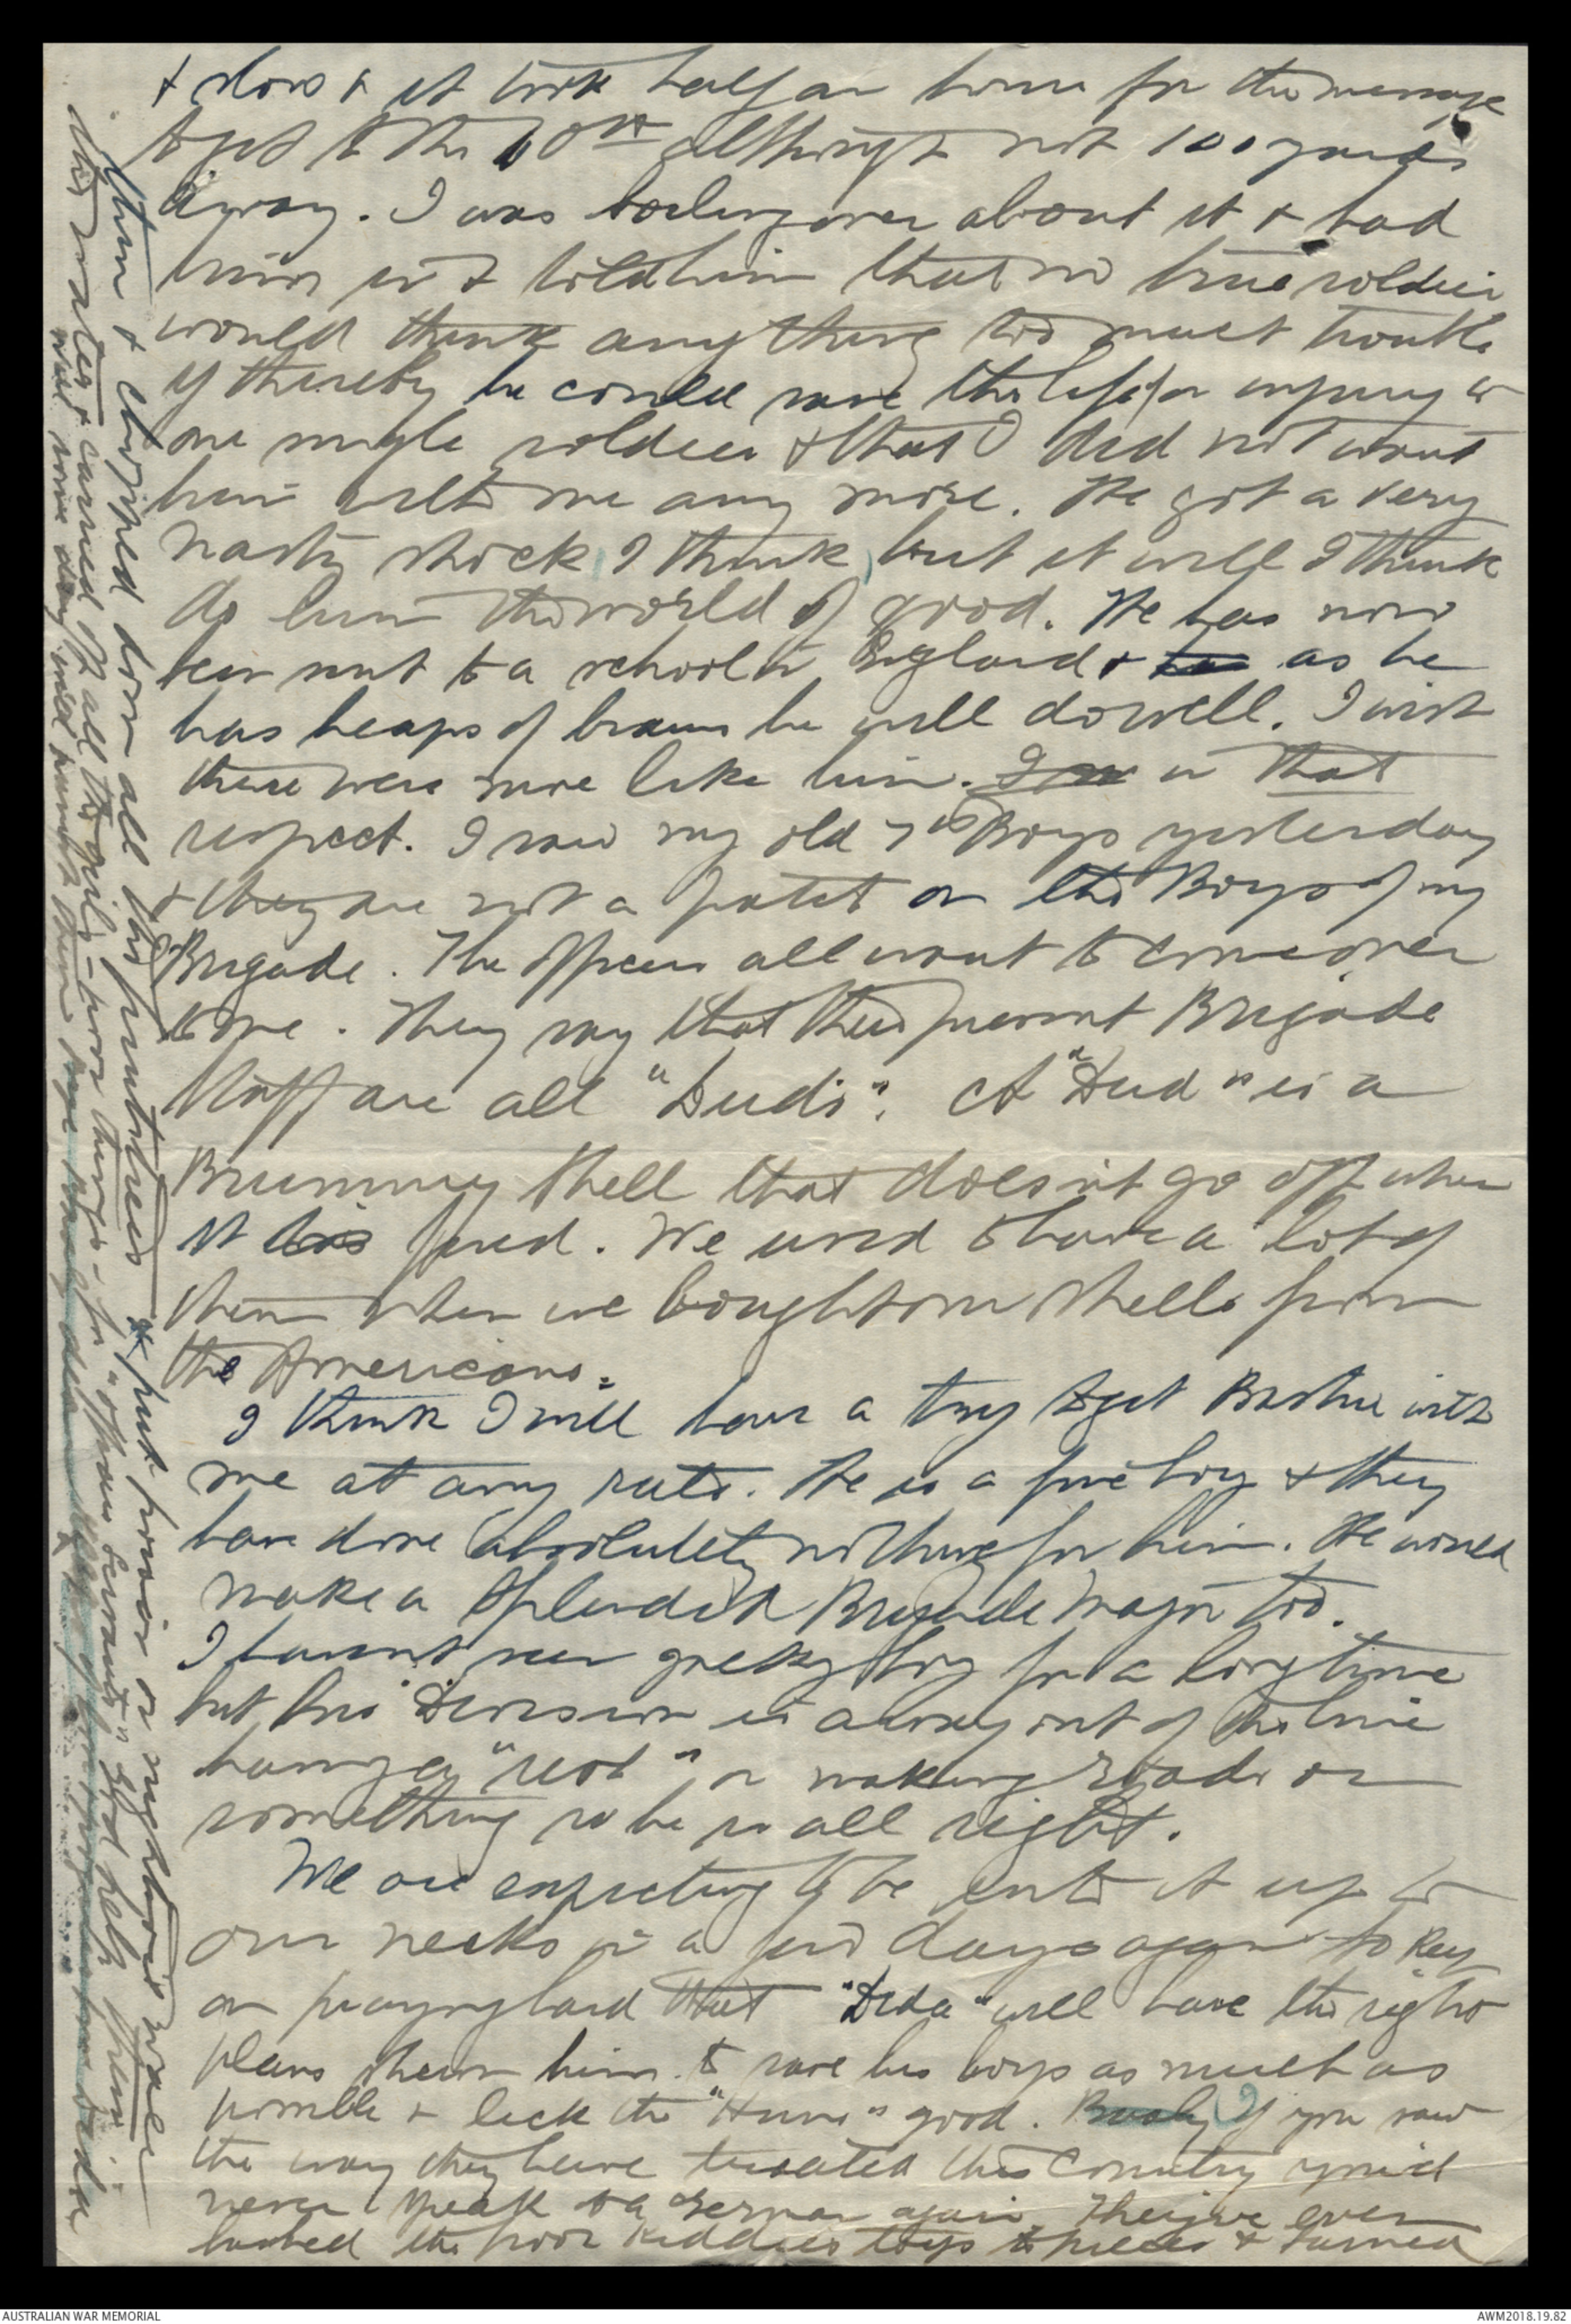 & slow & it took half an hour for the message
to get to the 60th although not 100 yards
away. I was boiling over about it & had
him in & told him that no true soldier
would think anything too much trouble
if thereby he could save the life or injury to
one single soldier & that I did not want
him with me any more. He got a very
nasty shock, I think, but it will I think
do him the world of good. He has now
been sent to a school in England & as he
has heaps of brains he will do well. I wish
there were more like him. in that
respect. I saw my old 7th Boys yesterday
& they are not a patch on the Boys of my
Brigade. The officers all want to come over
to me. They say that their present Brigade
Staff are all "Duds". A "Dud" is a
Brummy shell that doesn't go off when
it is fired. We used to have a lot of
them when we bought our shells from
the Americans.
I think I will have a try to get with
me at any rate. He is a fine boy & they
have done absolutely nothing for him. He would
make a splendid Brigade Major too.
I haven't seen boy for a long time
but his Division is away out of the line
having a "rest", or making roads or
something so he is all right.
We are expecting to be into it up to
our necks in a few days again so keep
on praying hard that "Dida" will have the right
plans shewn him to save his boys as much as
possible & lick the "Huns" good. If you saw
the way they have treated this country you'd
never speak to a German again. They've even
bashed the poor kiddies toys to pieces & burned
them & chopped down all the fruit trees & put poison or in the wells
the water & carried off all the girls - poor things - for "officers servants" God help them.
will some day and punish them
AUSTRALIAN WAR MEMORIAL
AWM2018.19.82